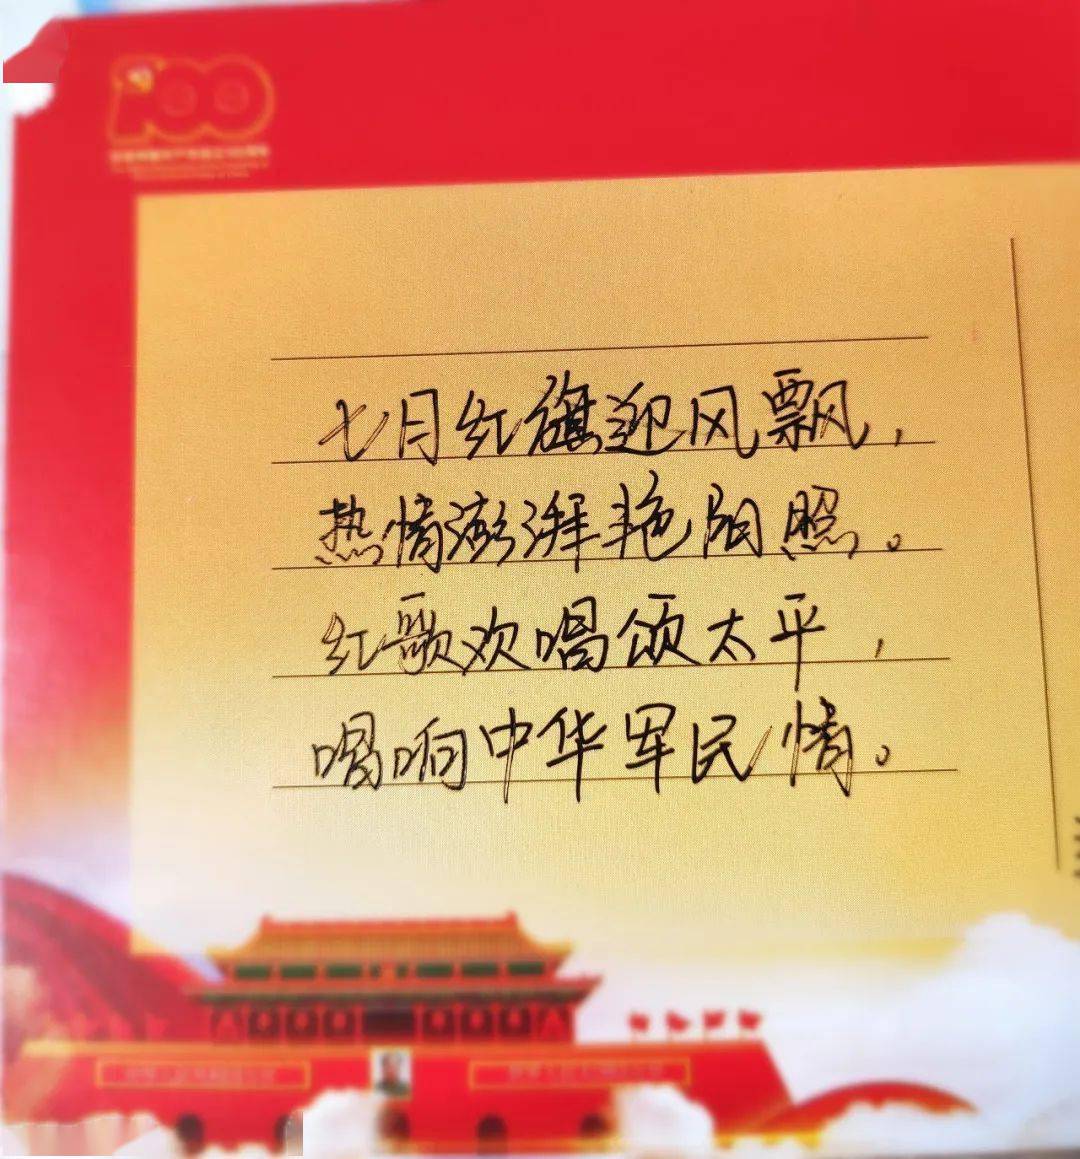 100
七月红旗迎风飘，
热情澎湃艳阳照。
红歌欢唱颂太平，
唱响中华军民情。